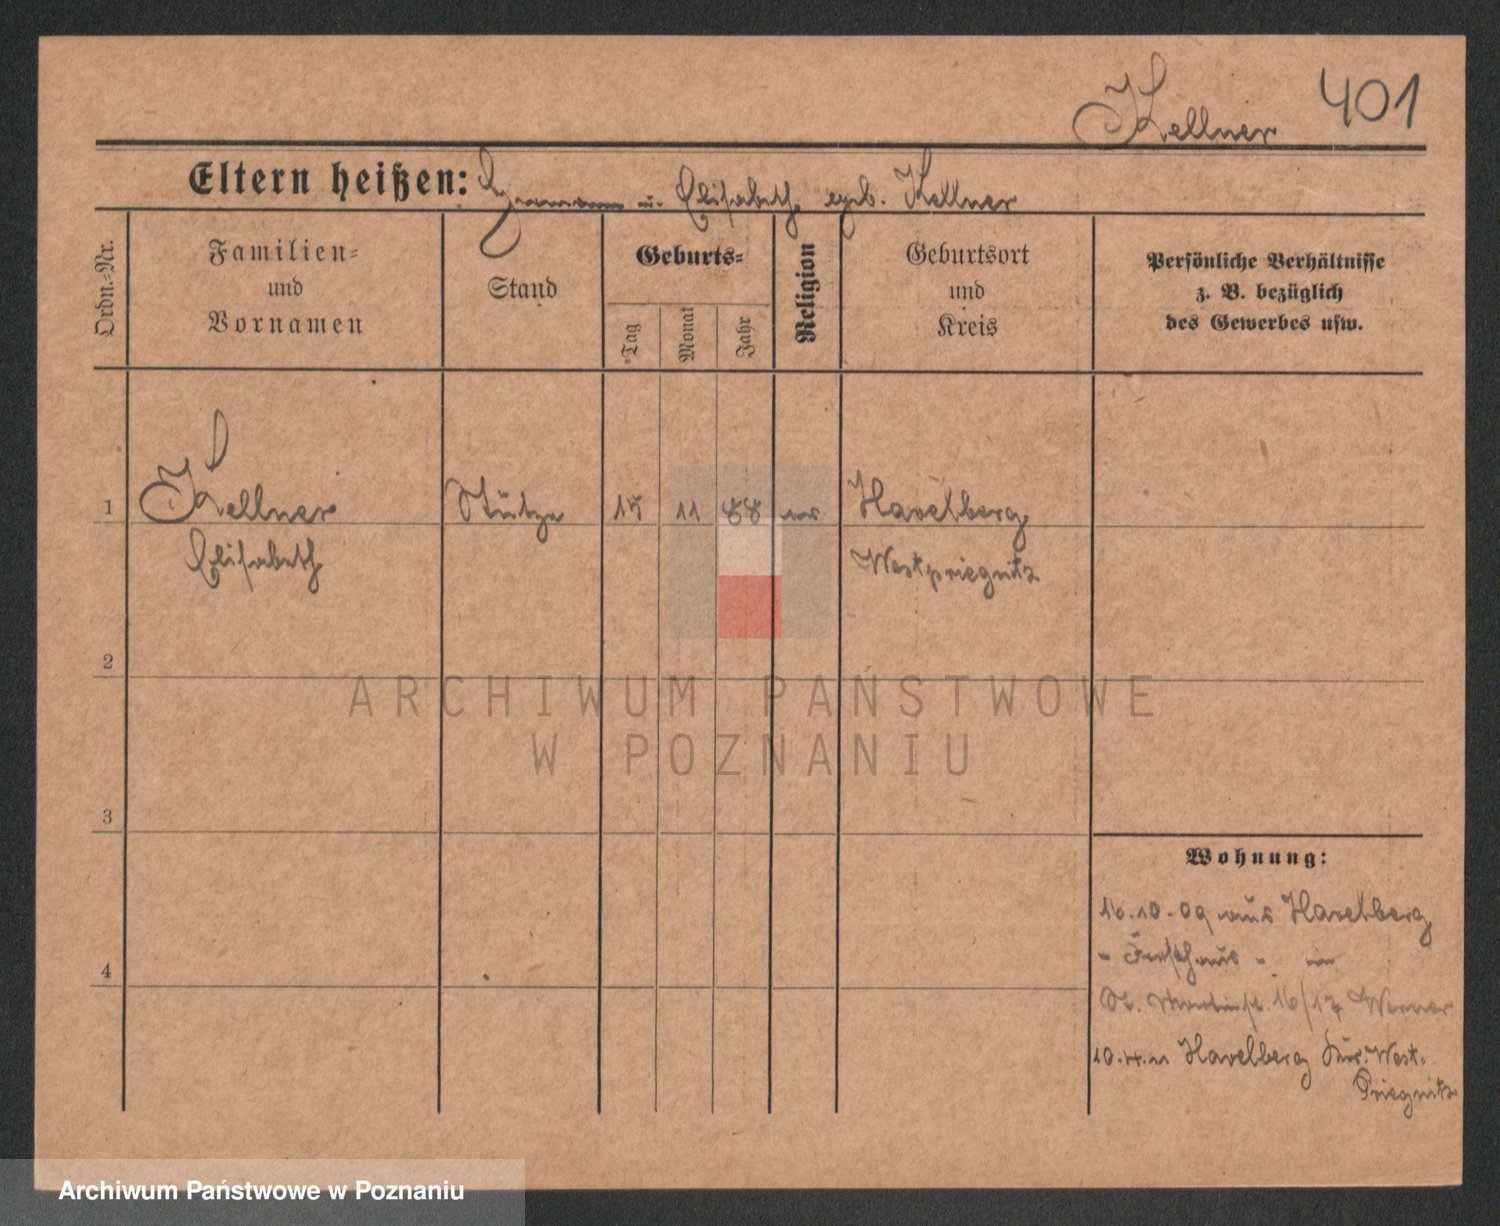 Kellner 401
Eltern heißen: Hermann u. Elisabeth geb. Kellner
Ordn.-Nr.
Familien-
und
Vornamen
Stand
Geburts-
Tag
Monat
Jahr
Religion
Geburtsort
und
Kreis
Persönliche Verhältnisse
z. B. bezüglich
des Gewerbes usw.
1 Kellner Stütze 15 11 88 Havelberg
Elisabeth Westpriegnitz
2
ARCHIWUM PAŃSTWOWE
W POZNANIU
3
Wohnung:
16.10.09 aus Havelberg
4
St. Martinst. 16/17 Werner
10.4.11 Havelberg Westpriegnitz
Archiwum Państwowe w Poznaniu